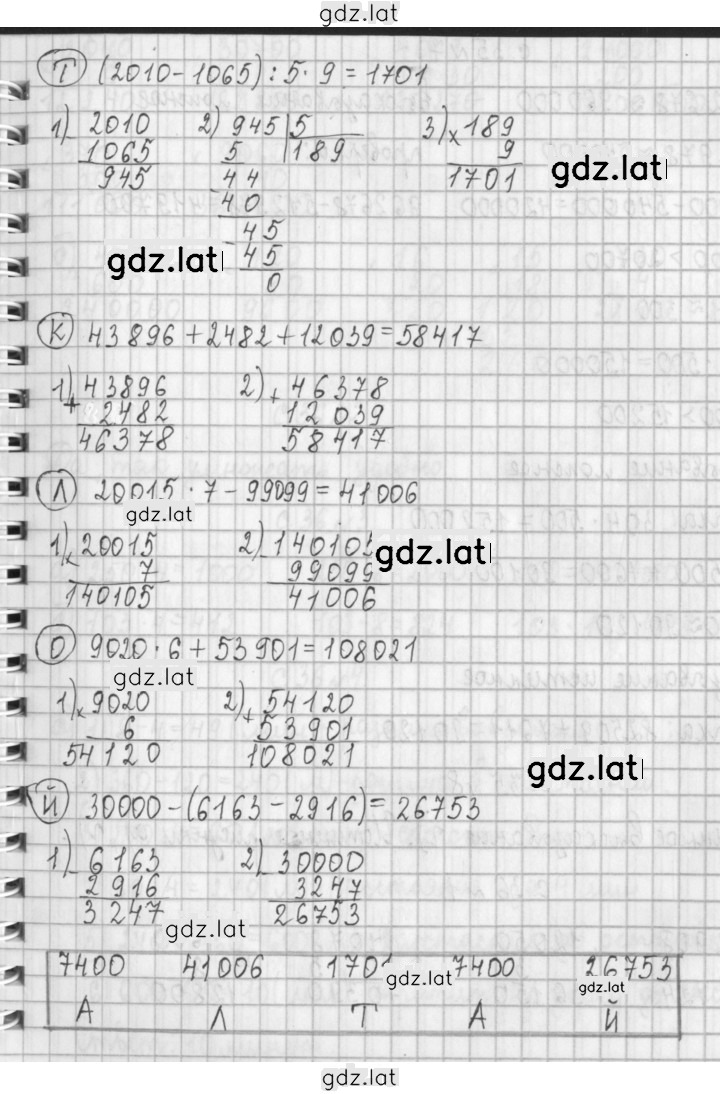 gdz.lat
Т (2010-1065):5·9=1701
1) 2010 2) 945 5 3) × 189
- 1065 5 189 9
945 - 44 1701
gdz.lat
40
- 45
gdz.lat
45
0
К 43896+2482+12039=58417
1) + 43896 2) + 46378
2482 12039
46378 58417
Л 20015·7-99099=41006
gdz.lat
1) × 20015 2) - 140105
gdz.lat
7 99099
140105 41006
О 9020·6+53901=108021
gdz.lat
1) × 9020 2) + 54120
6 53901
54120 108021
gdz.lat
Й 30000-(6163-2916)=26753
1) - 6163 2) - 30000
2916 3247
3247 26753
gdz.lat
7400 41006 1701 7400 26753
gdz.lat
gdz.lat
А Л Т А Й
gdz.lat